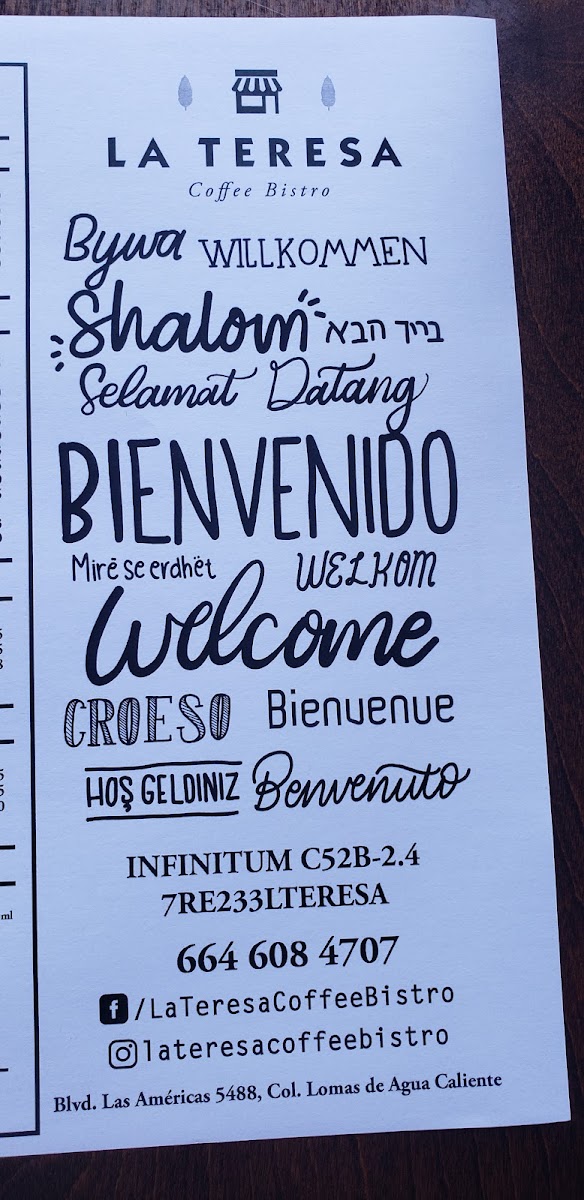 LA TERESA
Coffee Bistro
Bywa WILLKOMMEN
Shalom בייך הבא
Selamat Datang
BIENVENIDO
Mirë se erdhët WELKOM
Welcome
CROESO Bienvenue
HOŞ GELDINIZ Benvenuto
INFINITUM C52B-2.4
7RE233LTERESA
664 608 4707
/LaTeresaCoffeeBistro
lateresacoffeebistro
Blvd. Las Américas 5488, Col. Lomas de Agua Caliente
ml